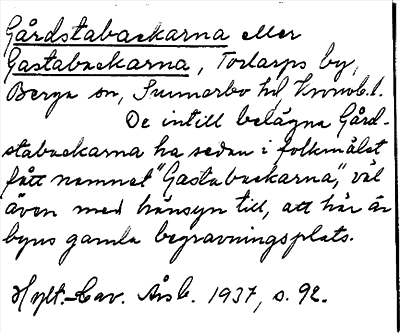 Gårdstabackarna eller
Gastabackarna, Torlarps by,
Berga sn, Sunnerbo hd Kronob. l.
De intill belägna Gård-
stabackarna ha sedan i folkmålet
fått namnet "Gastabackarna", väl
även med hänsyn till, att här är
byns gamla begravningsplats.
Hylt.-Cav. Årsb. 1937, s. 92.